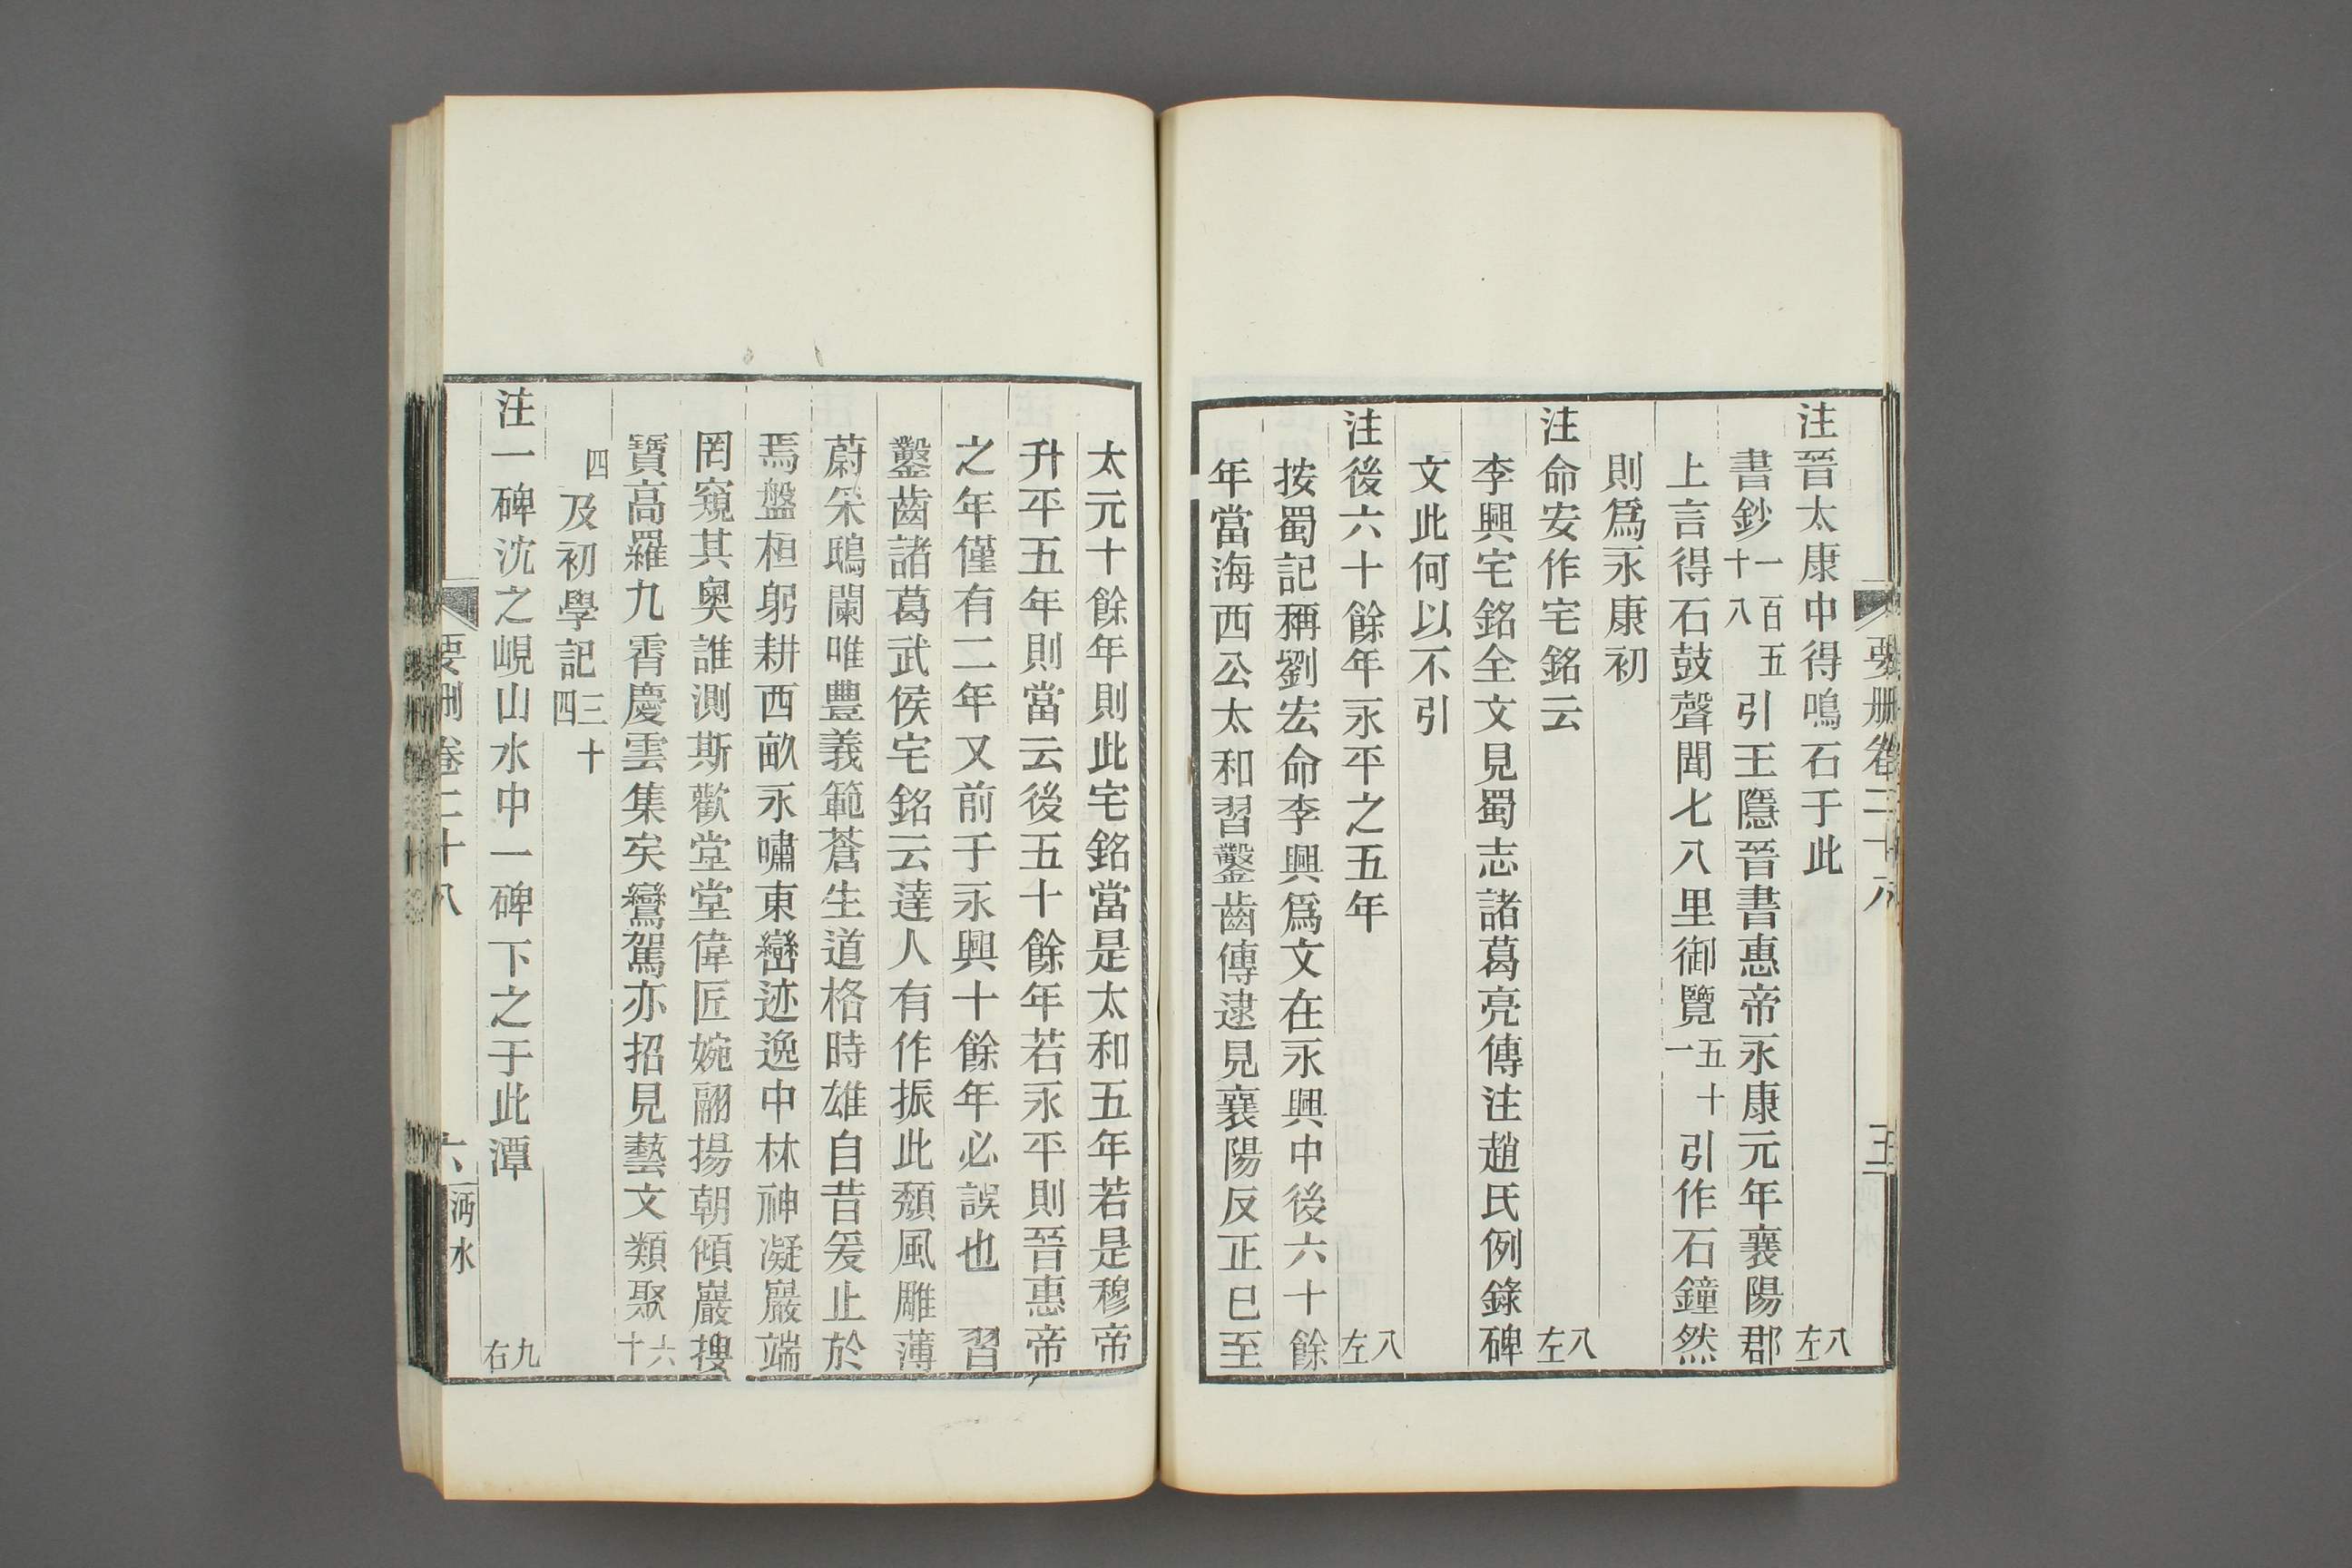 注晉太康中得鳴石于此 八左
書鈔一百五十八引王隱晉書惠帝永康元年襄陽郡
上言得石鼓聲聞七八里御覽五十一引作石鐘然
則爲永康初
注命安作宅銘云 八左
李興宅銘全文見蜀志諸葛亮傳注趙氏例錄碑
文此何以不引
注後六十餘年永平之五年 八左
按蜀記稱劉宏命李興爲文在永興中後六十餘
年當海西公太和習鑿齒傳逮見襄陽反正已至
太元十餘年則此宅銘當是太和五年若是穆帝
升平五年則當云後五十餘年若永平則晉惠帝
之年僅有二年又前于永興十餘年必誤也 習
鑿齒諸葛武侯宅銘云達人有作振此頽風雕薄
蔚采鴟闌唯豐義範蒼生道格時雄自昔爰止於
焉盤桓躬耕西畝永嘯東巒迹逸中林神凝巖端
罔窺其奧誰測斯歡堂堂偉匠婉翮揚朝傾巖搜
寶高羅九霄慶雲集矣鸞駕亦招見藝文類聚六十
四及初學記三十四
注一碑沈之峴山水中一碑下之于此潭 九右
要删卷二十八
六 沔水